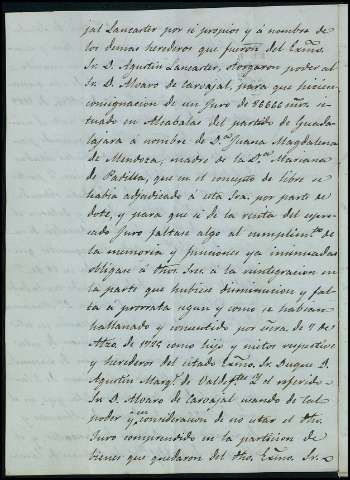 jal Lancaster por si propios y á nombre de
los demas herederos que fueron del Exmo.
Sr. D. Agustin Lancaster, otorgaron poder al
Sr. D. Alvaro de Carvajal, para que hiciese
consignacion de un Juro de 86666 mrs. si-
tuado en Alcabalas del partido de Guada-
lajara á nombre de D.ª Juana Magdalena
de Mendoza, madre de la D.ª Mariana
de Padilla, que en el concepto de libre se
habia adjudicado á esta Sra. por parte de
dote, y para que si de la renta del espre-
sado Juro faltase algo al cumplimto. de
la memoria y funciones ya enunciadas
obligase á dhos. Sres. á la reintegracion en
la parte que hubiese disminucion y fal-
ta á prorrata segun y como se habian
hallanado y consentido por escra. de 7 de
como hijo y nietos respective
y herederos del citado Exmo. Sr. Duque D.
Agustin y el referido
Sr. D. Alvaro de Carvajal usando de tal
poder y en consideracion de no estar el dho.
Juro comprendido en la particion de
bienes que quedaron del dho. Exmo. Sr.